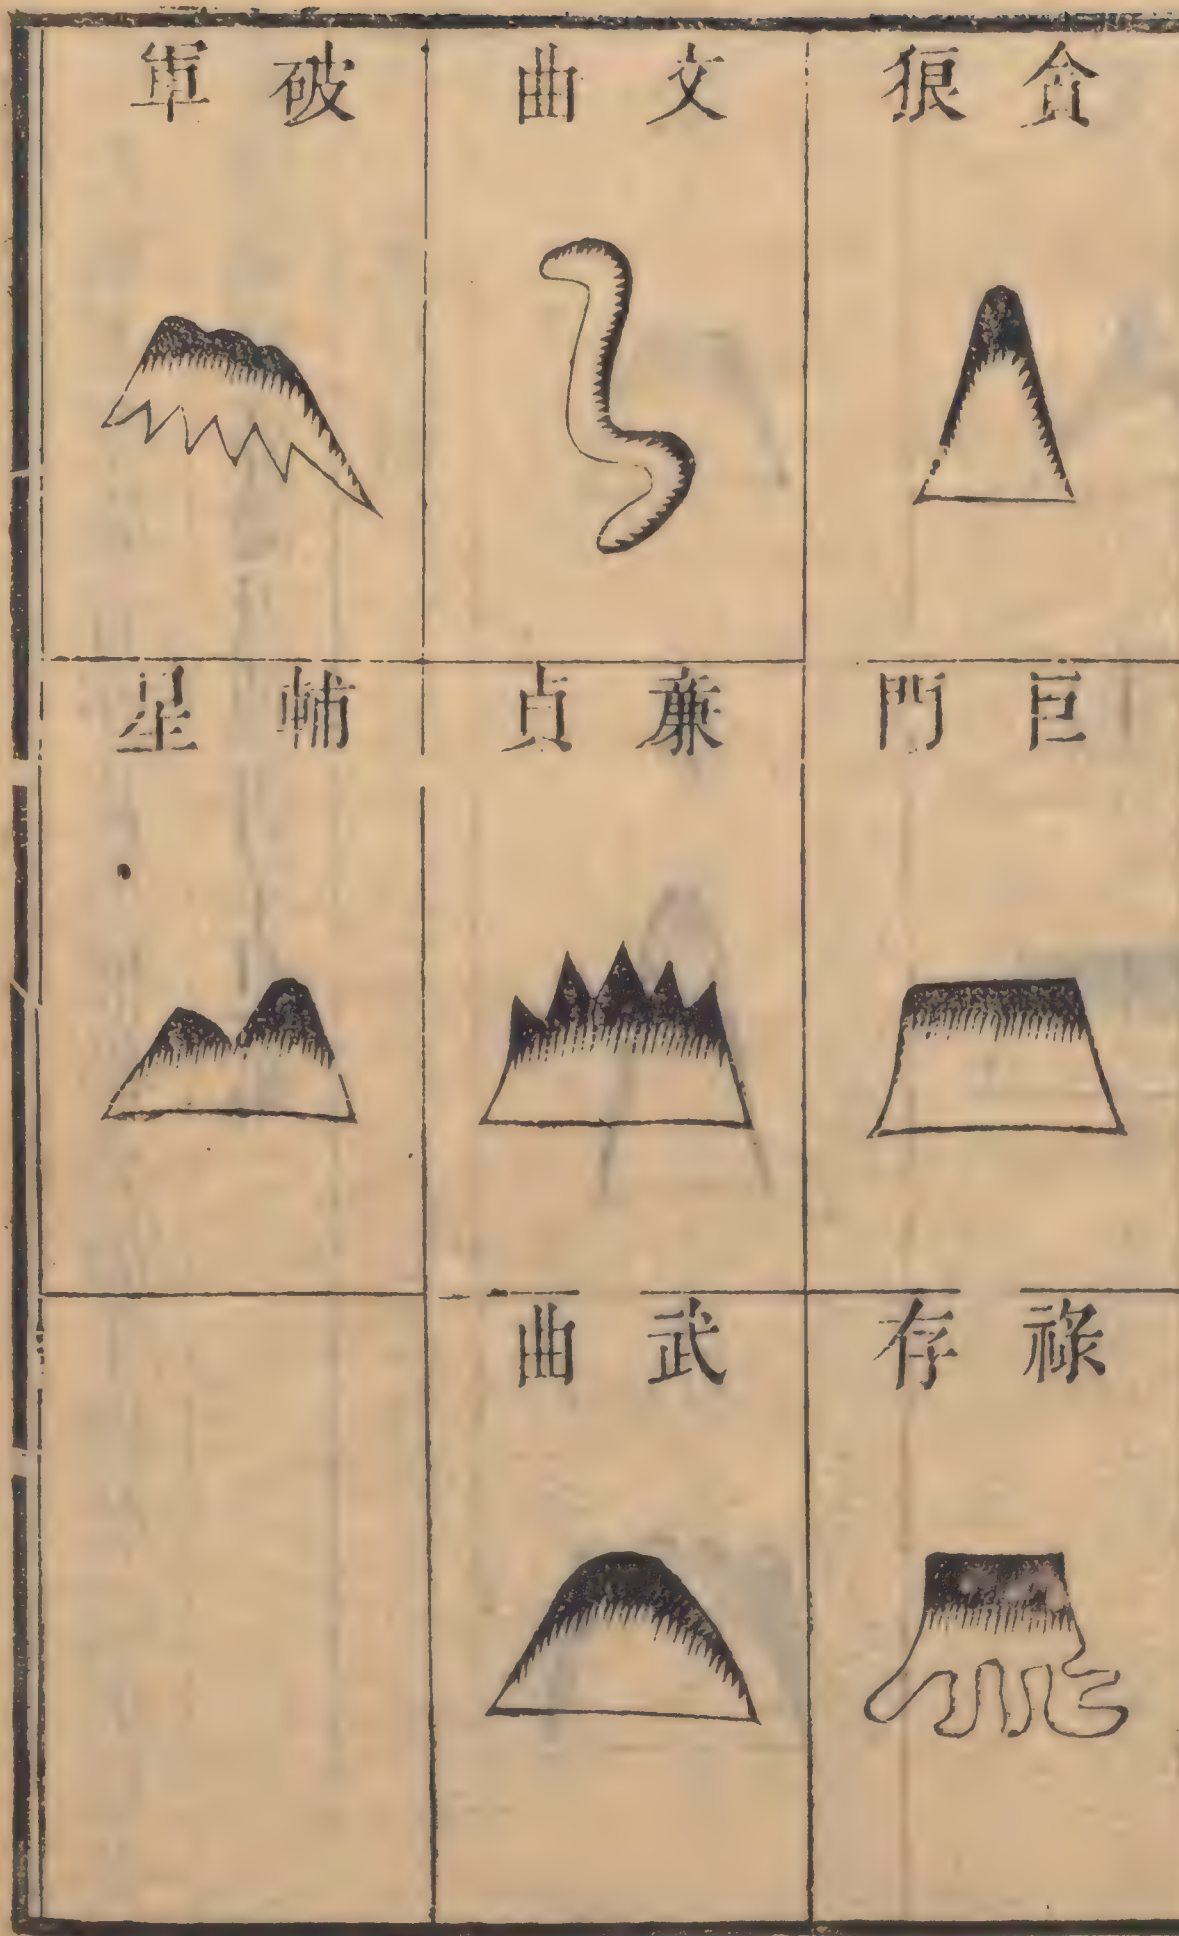 貪狼
巨門
祿存
文曲
廉貞
武曲
破軍
輔星